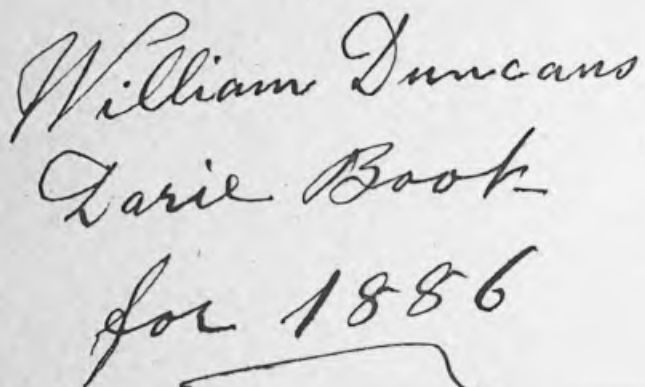 William Duncans
Darie Book
for 1886